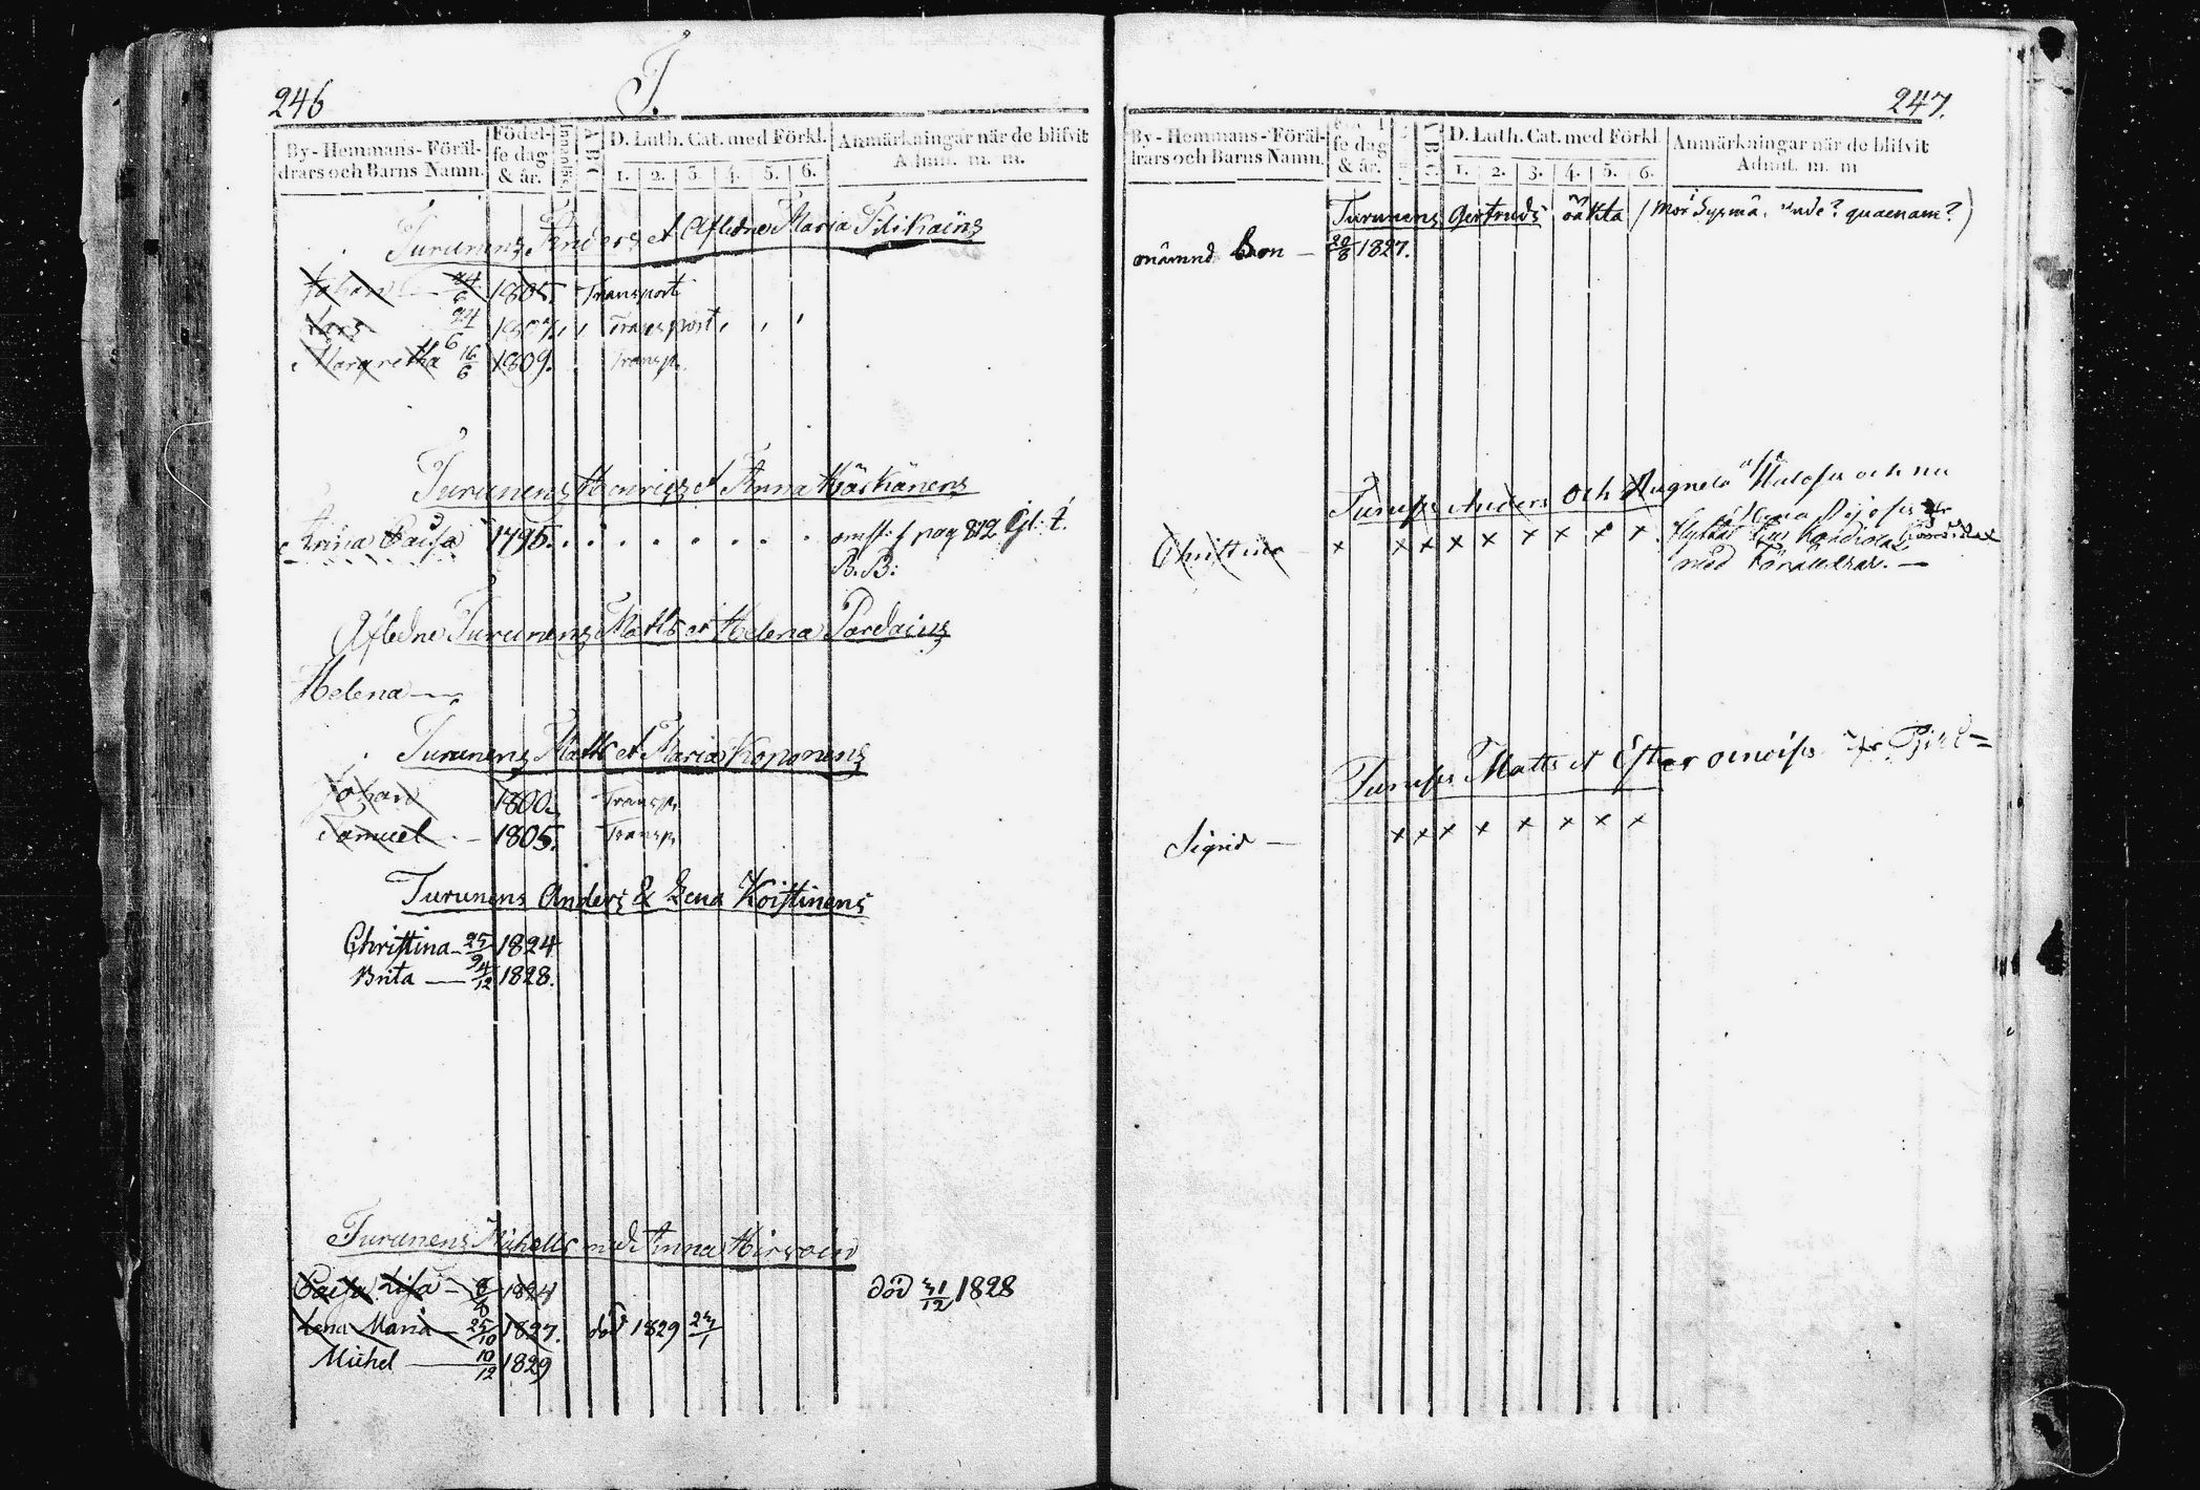 246
T.
By- Hemmans- Föräl-
drars och Barns Namn.
Födel-
se dag
& år.
Innanläs
A B C
D. Luth. Cat. med Förkl.
1. 2. 3. 4. 5. 6.
Anmärkningar när de blifvit
Admit. m. m.
Turunens Anders et Afledne Maria Tilikains
Johan 24/6 1805. Transport
Lars 24/6 1807. Transport
Margretha 16/6 1809. Transp.
Turunens Henrics et Anna Käskänens
Anna Caisa 1795. omst: f pag 812 Gl: L.
B. B:
Afledne Turunens Matts et Helena Pardains
Helena —
Turunens Matts et Maria Kononens
Johan 1800. Transp.
Samuel — 1805. Transp.
Turunens Anders & Lena Koistinens
Christina 25/9 1824
Brita — 4/12 1828.
Turunens Michells med Anna Hirvoin
Caisa Lisa — 8/8 1824 död 31/12 1828
Lena Maria — 25/10 1827. död 1829 23/1
Michel — 10/12 1829
247.
By- Hemmans- Föräl-
drars och Barns Namn.
se dag
& år.
A B C
D. Luth. Cat. med Förkl
1. 2. 3. 4. 5. 6.
Anmärkningar när de blifvit
Admit. m. m
Turunens Gertruds oäkta (mor Sysmä. unde? quaenam?)
onämnd Son — 20/8 1827.
Anders och Magnela och nu
Christina x x x x x x x x x Flyttat till Kondiolax
med Föräldrar. —
Matts et Ester
Sigrid — x x x x x x x x